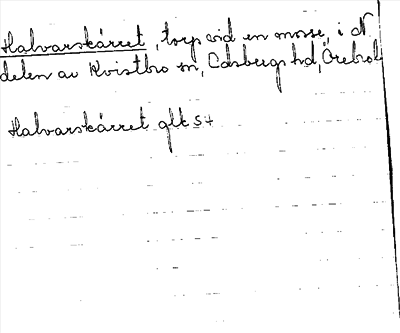 Halvarskärret, torp vid en mosse, i N
delen av Kvistbro sn, Edsbergs hd, Örebro l.
Halvarskärret glk S+